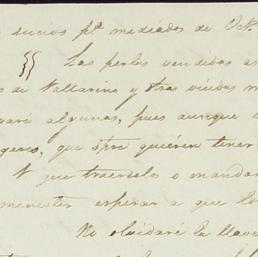 sucios pa. mediados de Oct.
Las perlas vendidas as
s de Vallarino y otras viudas m
varé algunas, pues aunque
geros, que spre quieren tener
Y que traerselos o mandar
menester esperar a que lo
No olvidaré la llave